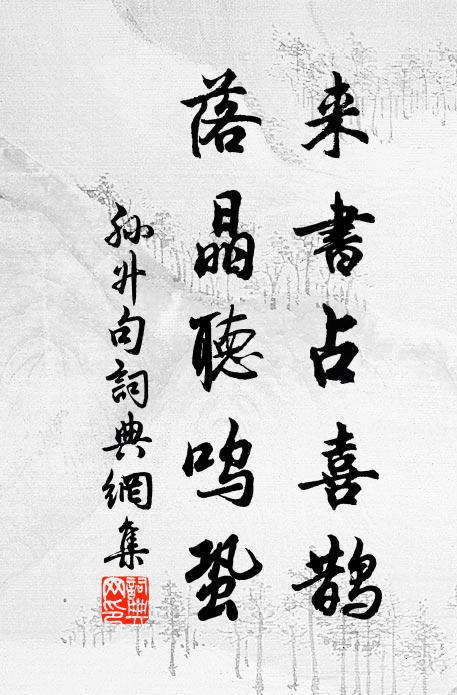 来書占喜鵲
落晶聽鳴蛩
孫升句詞典網集
詞典